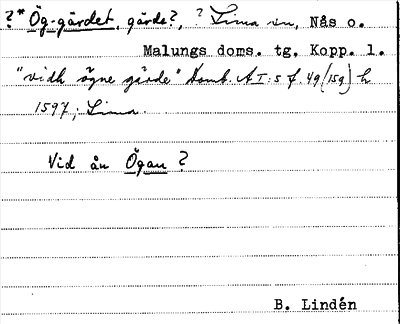 ?* Ög-gärdet, gärde?, ? Lima sn, Nås o.
Malungs doms. tg, Kopp. l.
"vidh ögne gärde" Domb. AI:5 f. 49 (159) h
1597; Lima.
Vid ån Ögan ?
B. Lindén